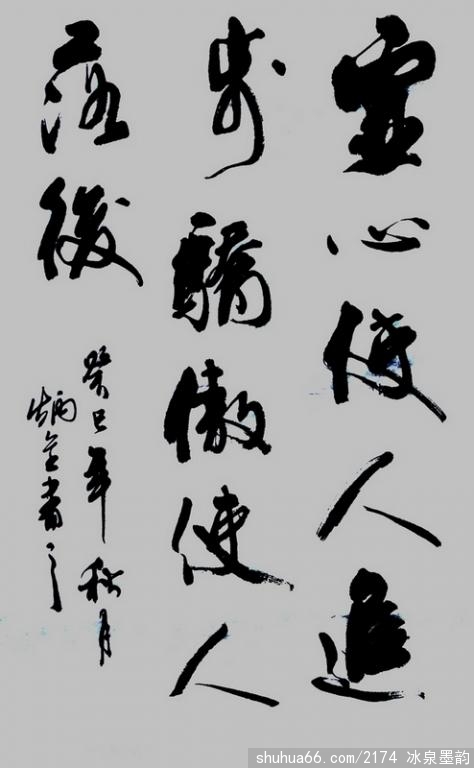 虚心使人進
步驕傲使人
落後
癸巳年秋月
炳全書之
shuhua66.com/2174 冰泉墨韵